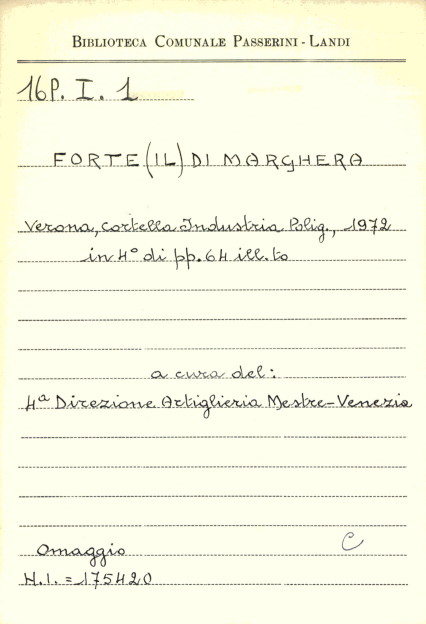 BIBLIOTECA COMUNALE PASSERINI - LANDI
16P. I. 1
FORTE (IL) DI MARGHERA
Verona, Cortella Industria Polig., 1972
in 4° di pp. 64 ill.to
a cura del:
4ª Direzione Artiglieria Mestre-Venezia
Omaggio
C
N.I. = 175420